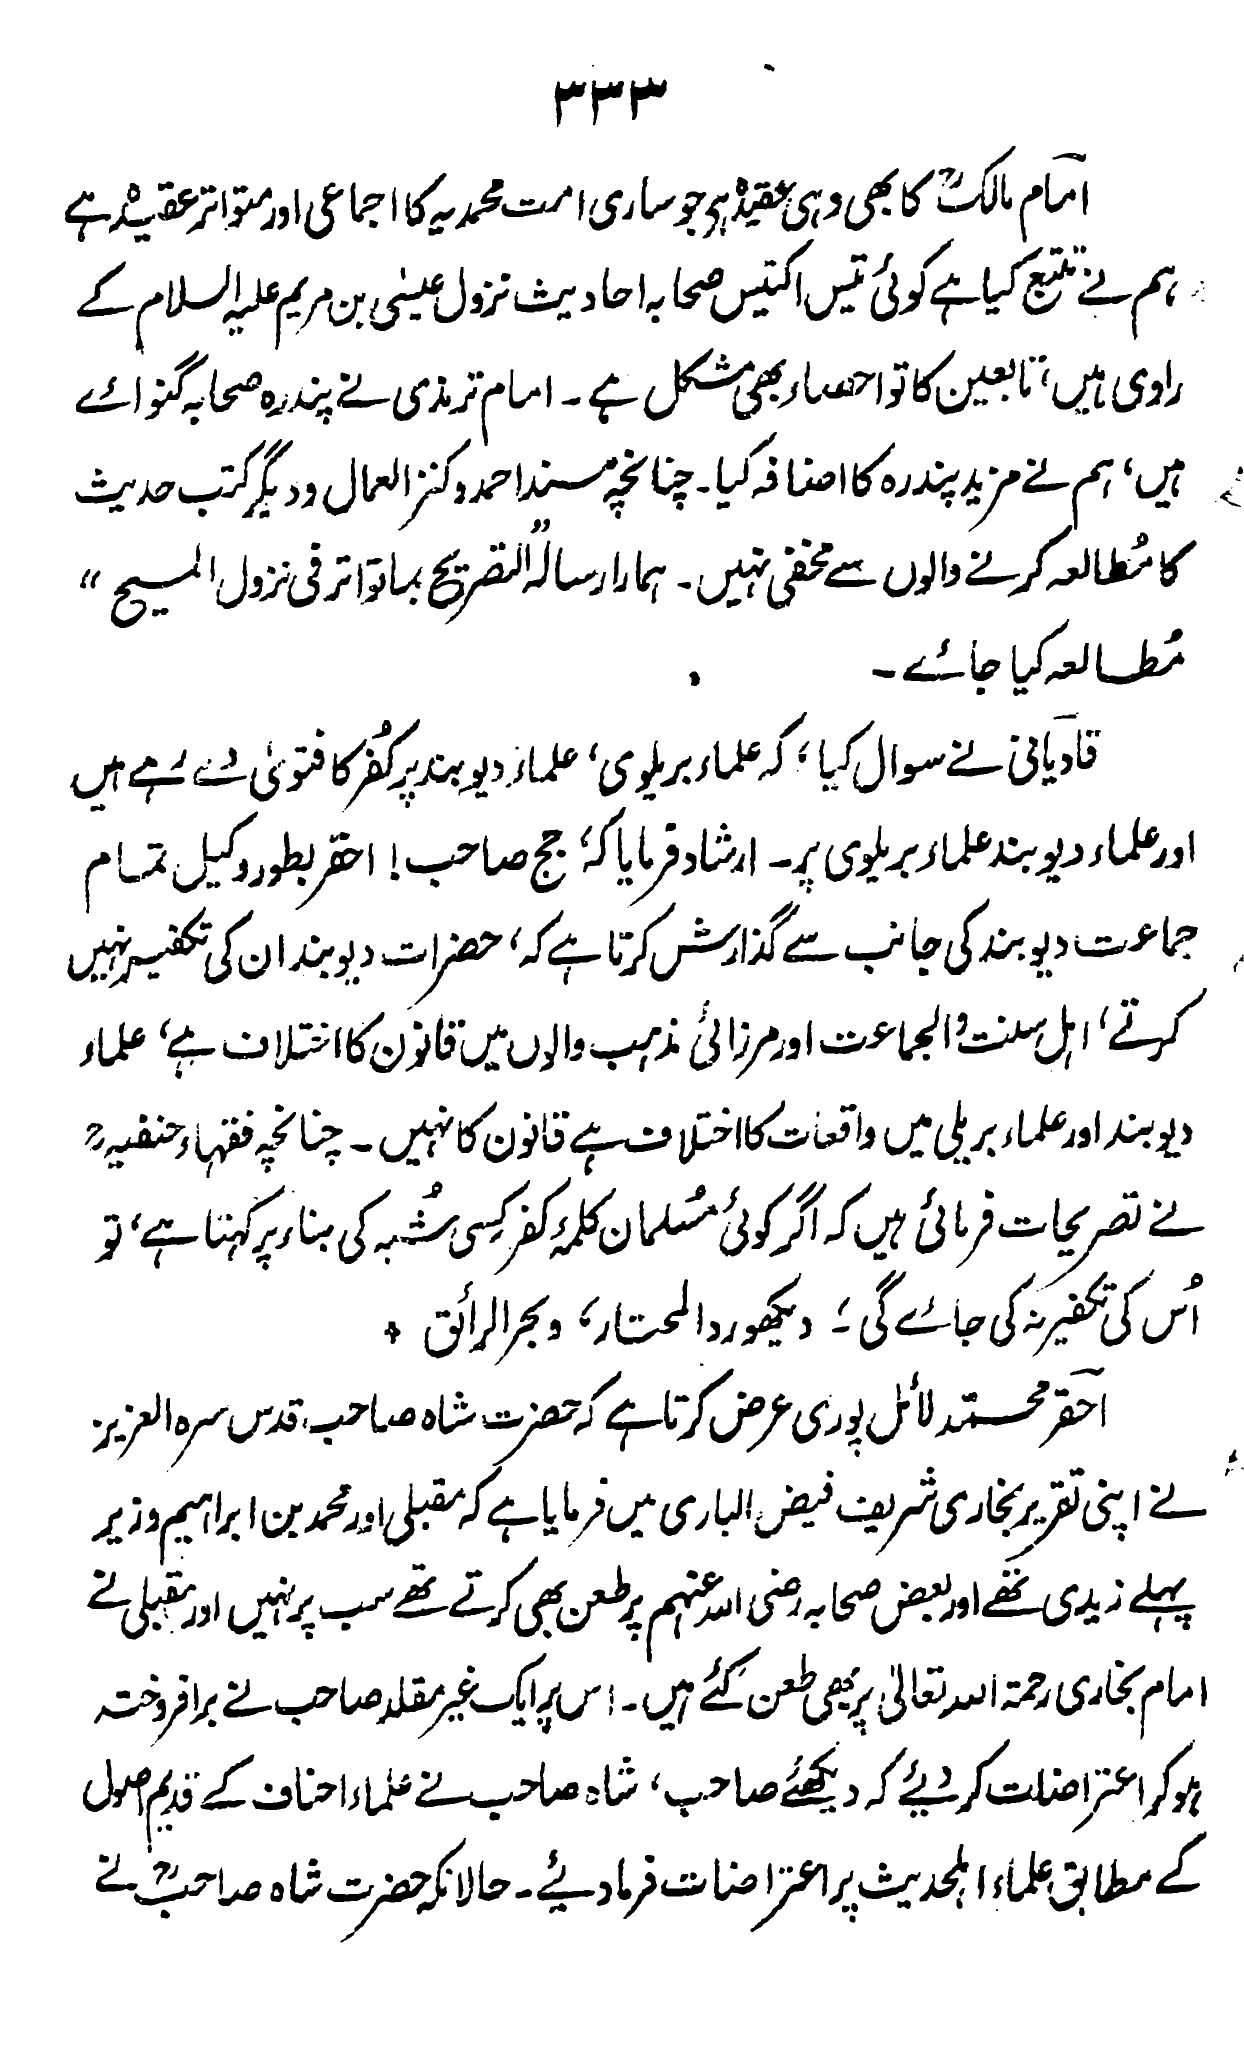 ۳۳۳
امام مالکؒ کا بھی وہی عقیدہ ہی جو ساری امت محمدیہ کا اجماعی اور متواتر عقیدہ ہے
ہم نے تتبع کیا ہے کوئی تیس اکتیس صحابہ احادیث نزول عیسٰی بن مریم علیہ السلام کے
راوی ہیں، تابعین کا تو احصاء بھی مشکل ہے۔ امام ترمذی نے پندرہ صحابہ گنوائے
ہیں، ہم نے مزید پندرہ کا اضافہ کیا۔ چنانچہ مسند احمد و کنز العمال و دیگر کتب حدیث
کا مُطالعہ کرنے والوں سے مخفی نہیں۔ ہمارا رسالہ "التصریح بما تواتر فی نزول المسیح"
مُطالعہ کیا جائے۔
قادیانی نے سوال کیا، کہ علماء بریلوی، علماء دیوبند پر کُفر کا فتویٰ دے رہے ہیں
اور علماء دیوبند علماء بریلوی پر۔ ارشاد فرمایا کہ، جج صاحب! احقر بطور وکیل تمام
جماعت دیوبند کی جانب سے گذارش کرتا ہے کہ، حضرات دیوبند ان کی تکفیر نہیں
کرتے، اہل سنت والجماعت اور مرزائی مذہب والوں میں قانون کا اختلاف ہے، علماء
دیوبند اور علماء بریلی میں واقعات کا اختلاف ہے قانون کا نہیں۔ چنانچہ فقہاء حنفیہ رح
نے تصریحات فرمائی ہیں کہ اگر کوئی مُسلمان کلمۂ کفر کِسی شُبہ کی بناء پر کہتا ہے، تو
اُس کی تکفیر نہ کی جائے گی؛ دیکھو رد المحتار، و بحر الرائق ۔
احقر محمد لائل پوری عرض کرتا ہے کہ حضرت شاہ صاحب قدس سرہ العزیز
نے اپنی تقریر بخاری شریف فیض الباری میں فرمایا ہے کہ مقبلی اور محمد بن ابراہیم وزیر
پہلے زیدی تھے اور بعض صحابہ رضی اللہ عنہم پر طعن بھی کرتے تھے سب پر نہیں اور مقبلی نے
امام بخاری رحمۃ اللہ تعالیٰ پر بھی طعن کئے ہیں۔ اس پر ایک غیر مقلد صاحب نے برافروختہ
ہو کر اعتراضات کر دیئے کہ دیکھئے صاحب، شاہ صاحب نے علماء احناف کے قدیم اصول
کے مطابق علماء اہلحدیث پر اعتراضات فرما دیئے۔ حالانکہ حضرت شاہ صاحبؒ نے